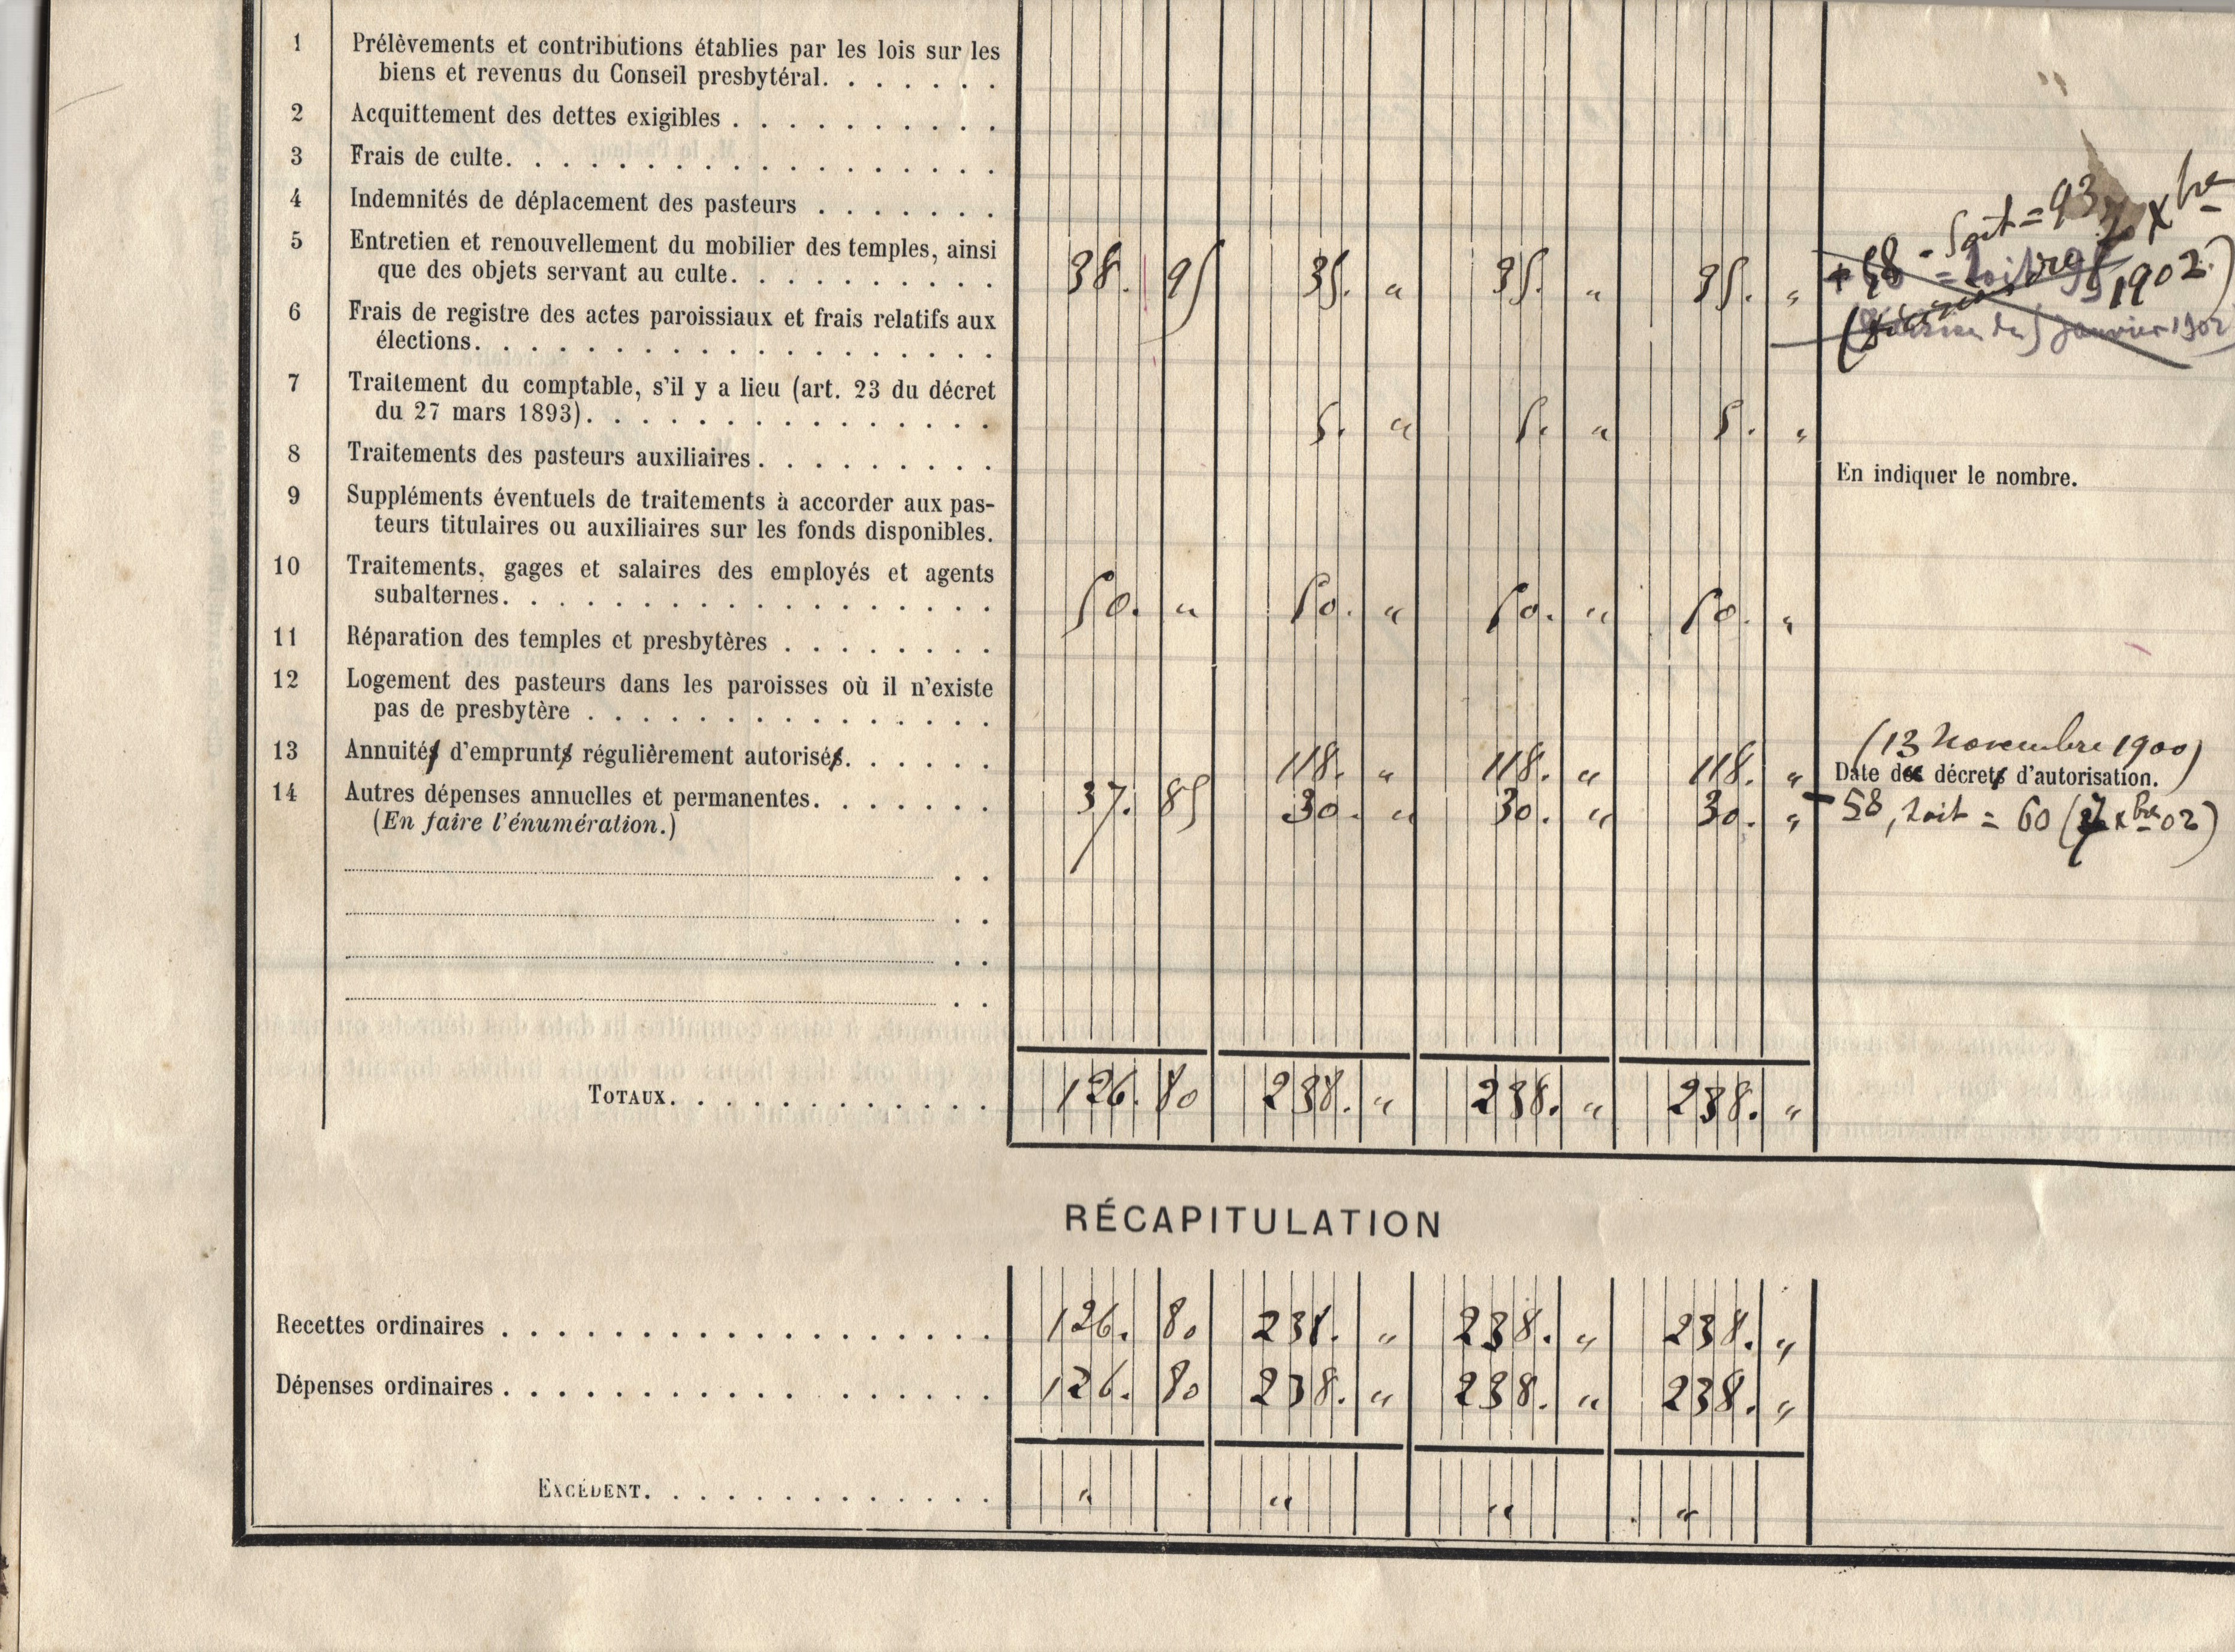 1 Prélèvements et contributions établies par les lois sur les
biens et revenus du Conseil presbytéral. . . . . . .
2 Acquittement des dettes exigibles . . . . . . . . . .
3 Frais de culte. . . . . . . . . . . . . . . . . .
4 Indemnités de déplacement des pasteurs . . . . . . .
+ 58 - Soit = 93
7 Xbre
1902)
5 Entretien et renouvellement du mobilier des temples, ainsi
que des objets servant au culte. . . . . . . . . . 38. 95 35. " 35. " 35. "
6 Frais de registre des actes paroissiaux et frais relatifs aux
élections. . . . . . . . . . . . . . . . . . .
janvier 1902
7 Traitement du comptable, s'il y a lieu (art. 23 du décret
du 27 mars 1893). . . . . . . . . . . . . . . 5. " 5. " 5. "
8 Traitements des pasteurs auxiliaires . . . . . . . . . En indiquer le nombre.
9 Suppléments éventuels de traitements à accorder aux pas-
teurs titulaires ou auxiliaires sur les fonds disponibles.
10 Traitements, gages et salaires des employés et agents
subalternes. . . . . . . . . . . . . . . . . . 50. " 50. " 50. " 50. "
11 Réparation des temples et presbytères . . . . . . . .
12 Logement des pasteurs dans les paroisses où il n'existe
pas de presbytère . . . . . . . . . . . . . . .
(13 Novembre 1900)
13 Annuités d'emprunts régulièrement autorisés. . . . . . 118. " 118. " 118. " Date des décrets d'autorisation.
14 Autres dépenses annuelles et permanentes. . . . . . . 37. 85 30. " 30. " 30. " - 58, soit = 60 (7 Xbre 02)
(En faire l'énumération.)
TOTAUX. . . . . . . . . . . . 126. 80 238. " 238. " 238. "
RÉCAPITULATION
Recettes ordinaires . . . . . . . . . . . . . . . . . . 126. 80 238. " 238. " 238. "
Dépenses ordinaires . . . . . . . . . . . . . . . . . . 126. 80 238. " 238. " 238. "
EXCÉDENT. . . . . . . . . . . . . " " " "